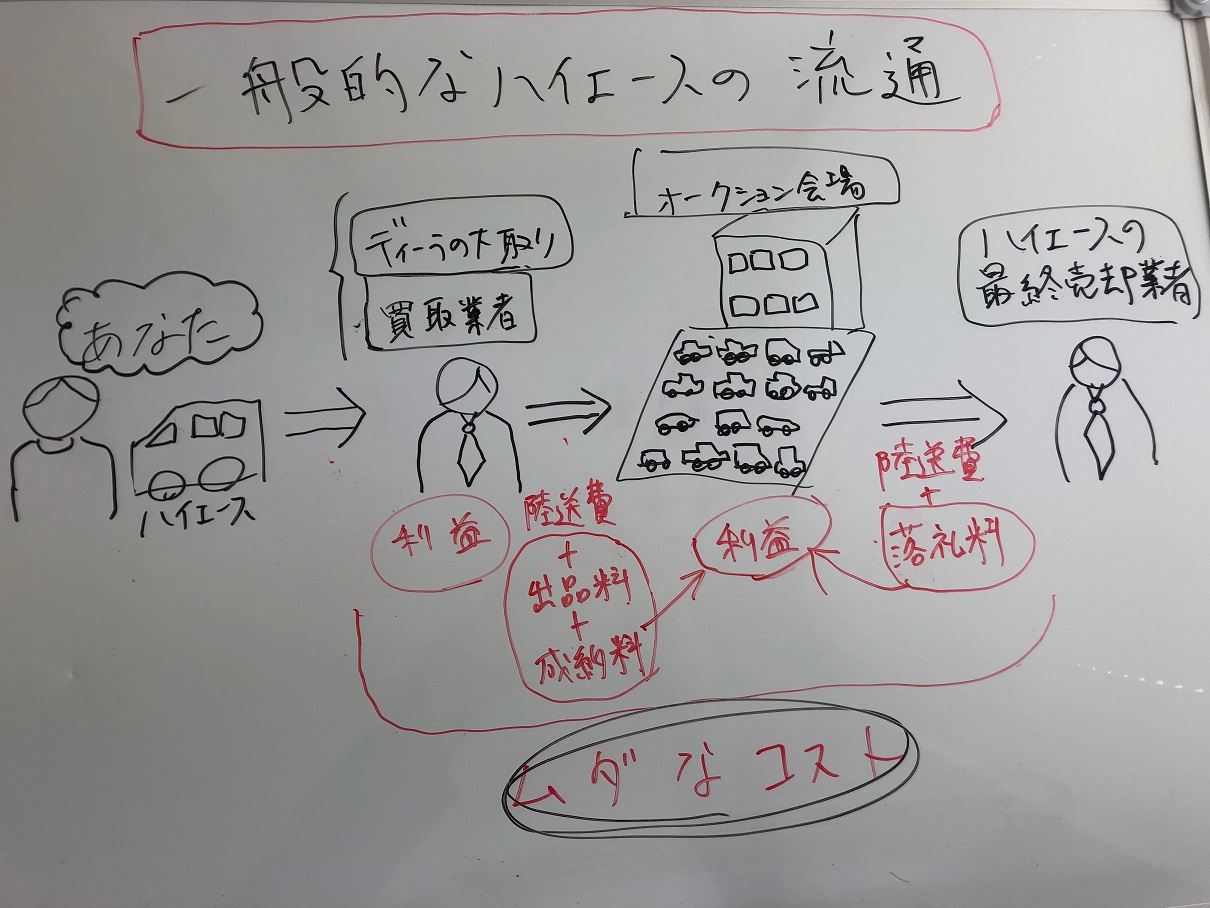 一般的なハイエースの流通
あなた
ハイエース
ディーラの下取り
買取業者
オークション会場
ハイエースの
最終売却業者
利益
陸送費
+
出品料
+
成約料
利益
陸送費
+
落札料
ムダなコスト